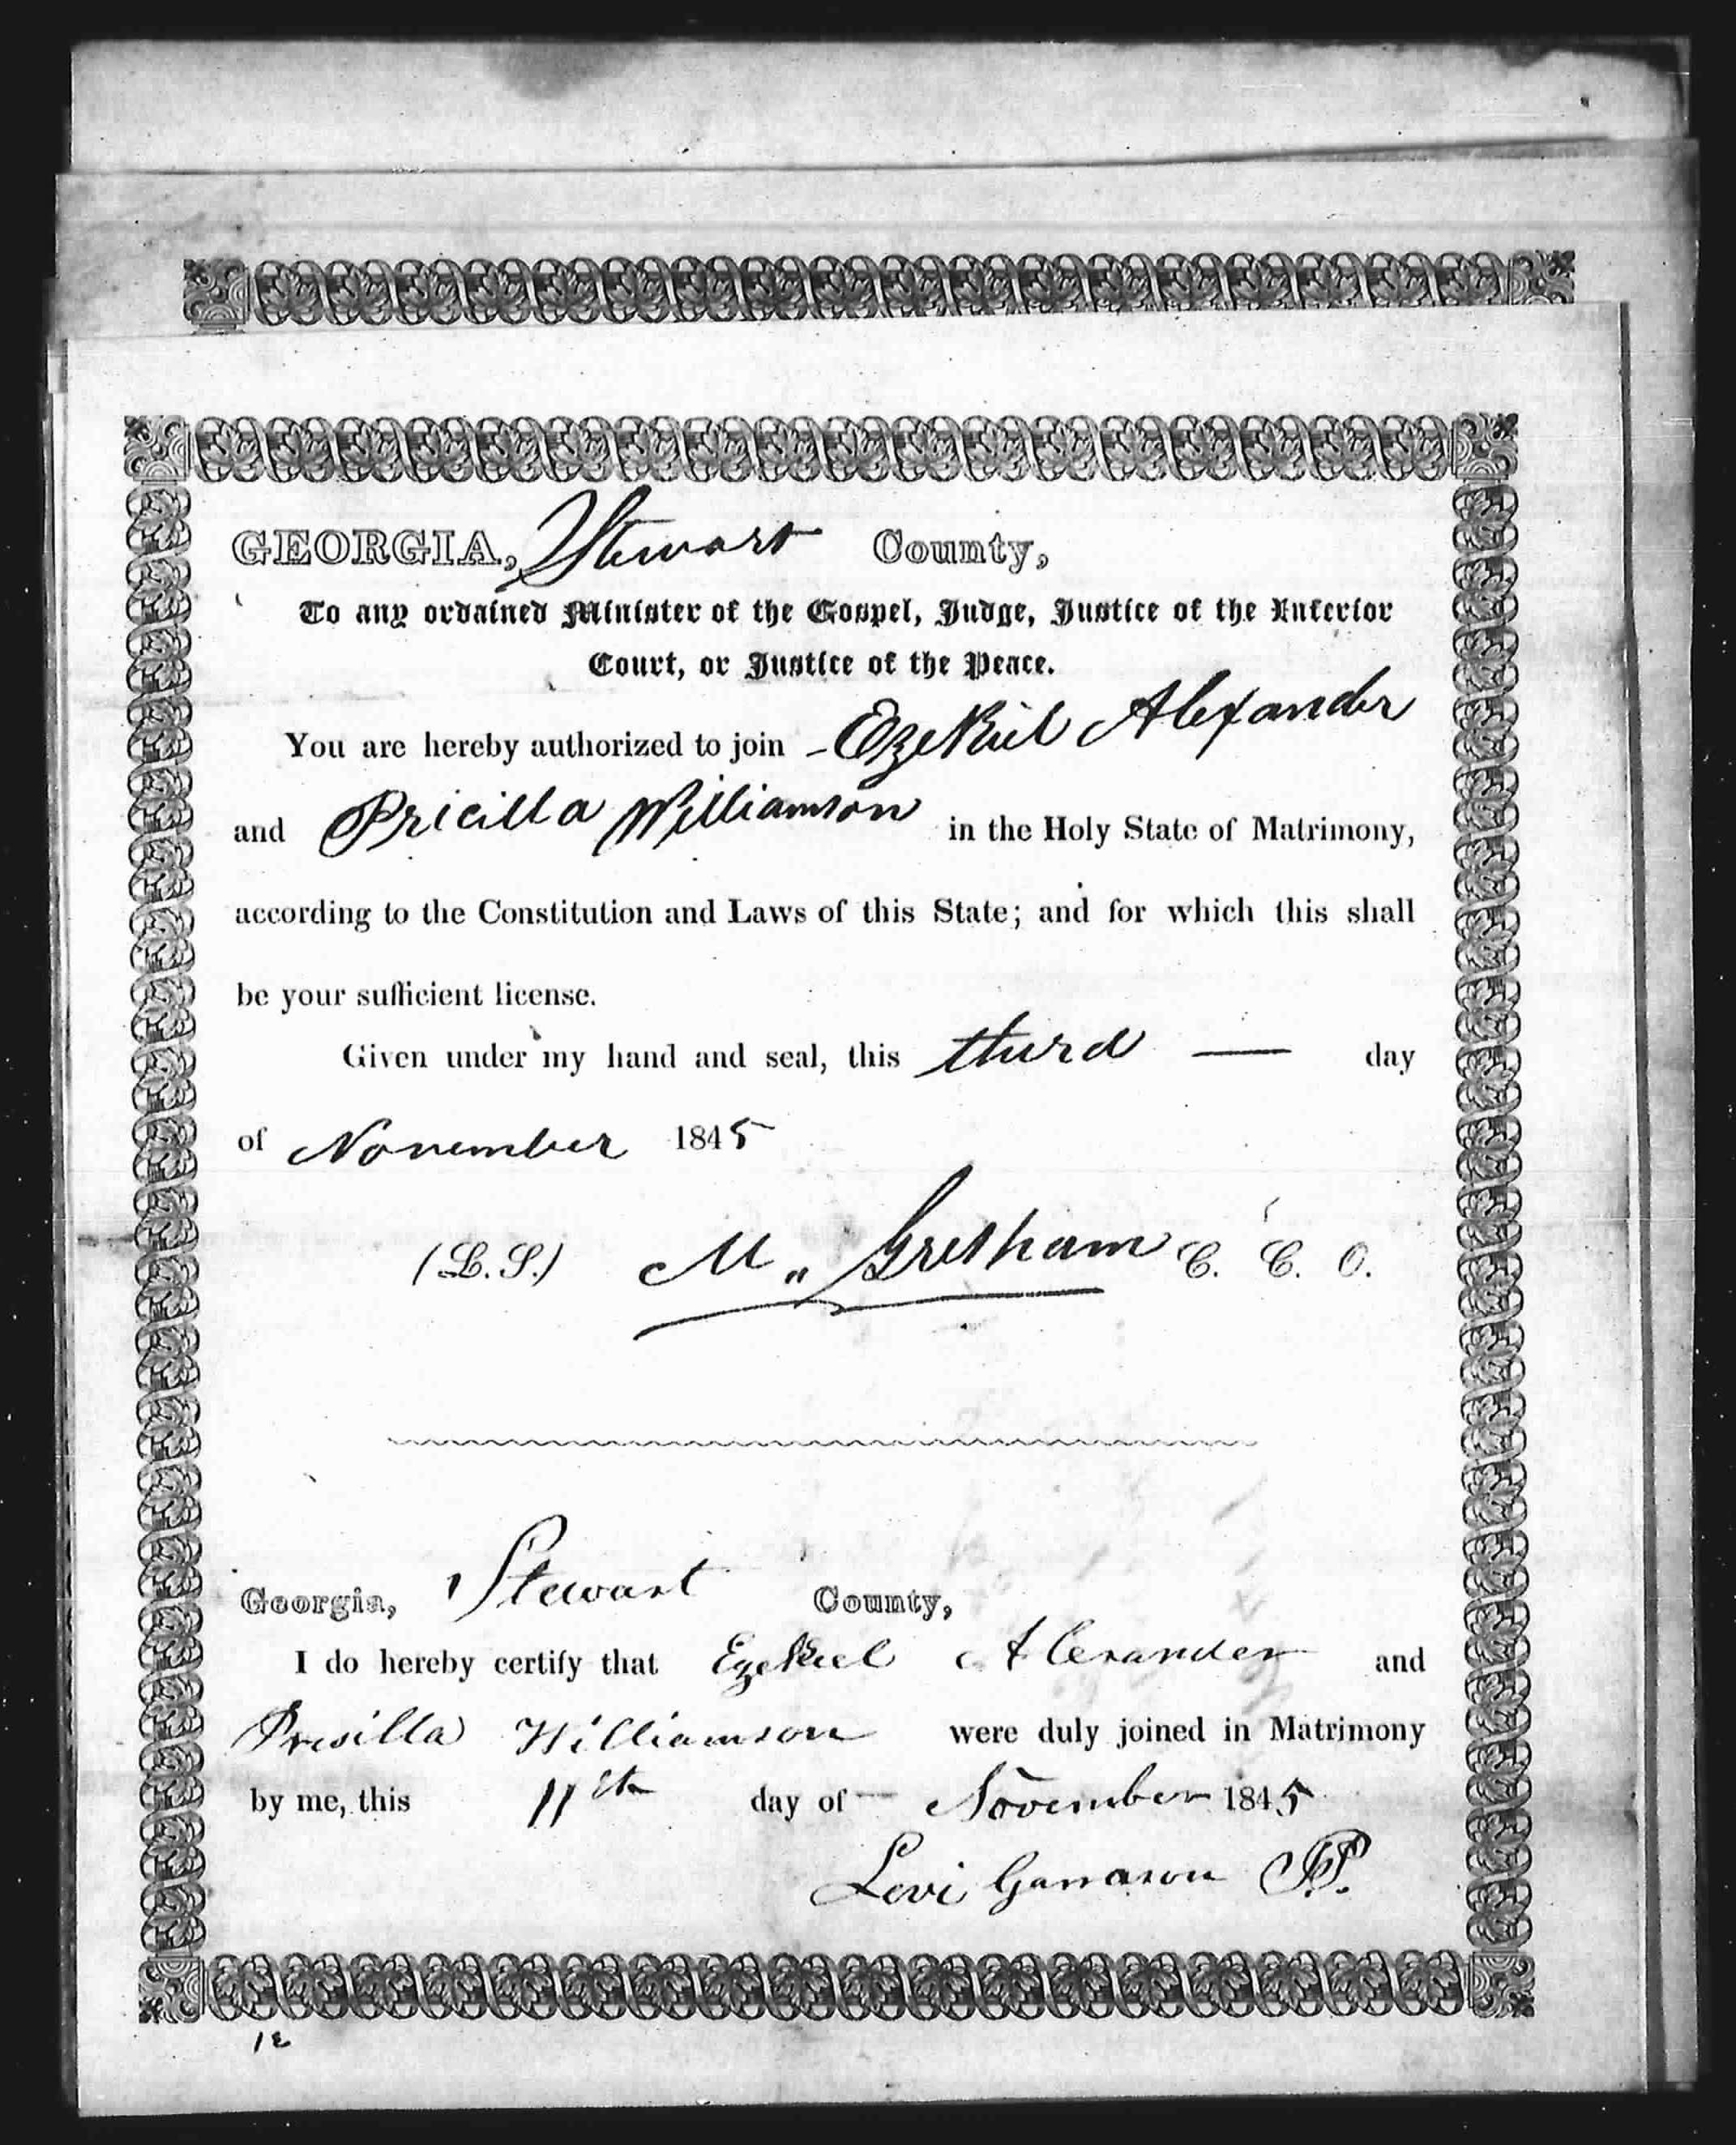 GEORGIA, Stewart County,
To any ordained Minister of the Gospel, Judge, Justice of the Inferior
Court, or Justice of the Peace.
You are hereby authorized to join Ezekiel Alexander
and Pricilla Williamson in the Holy State of Matrimony,
according to the Constitution and Laws of this State; and for which this shall
be your sufficient license.
Given under my hand and seal, this third — day
of November 1845
(L.S.) M. Gresham C. C. O.
Georgia, Stewart County,
I do hereby certify that Ezekiel Alexander and
Prisilla Williamson were duly joined in Matrimony
by me, this 11th day of November 1845
Levi